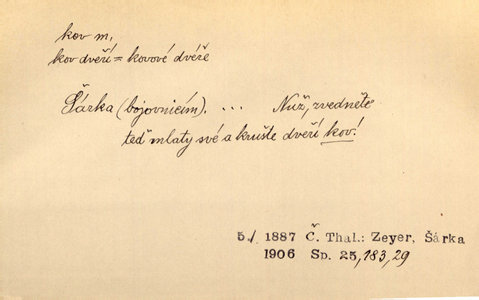 kov m,
kov dveří = kovové dvéře
Šárka (bojovnicím). ... Nuž, zvedněte
teď mlaty své a krušte dveří kov!
5./ 1887 Č. Thal.: Zeyer, Šárka
1906 Sp. 25,183,29